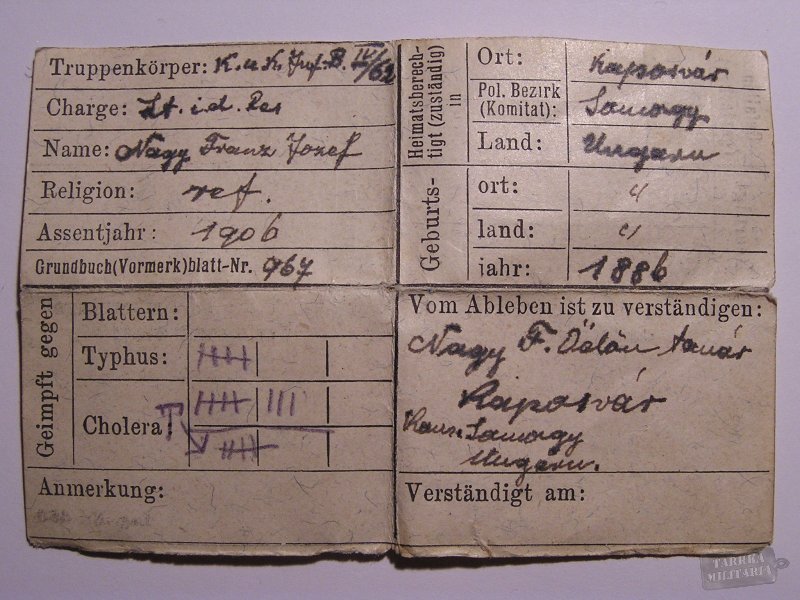 Truppenkörper: K. u. K. Inf. B. IV/62
Charge: Lt. i. d. Res
Name: Nagy Franz Jozef
Religion: ref.
Assentjahr: 1906
Grundbuch(Vormerk)blatt-Nr. 967
Heimatsberech-
tigt (zuständig)
in
Ort: Kaposvár
Pol. Bezirk
(Komitat): Somogy
Land: Ungarn
Geburts-
ort: "
land: "
jahr: 1886
Geimpft gegen
Blattern:
Typhus:
Cholera:
Anmerkung:
Vom Ableben ist zu verständigen:
Nagy F. Ödön tanár
Kaposvár
Kom. Somogy
Ungarn.
Verständigt am:
TARRKA
MILITARIA